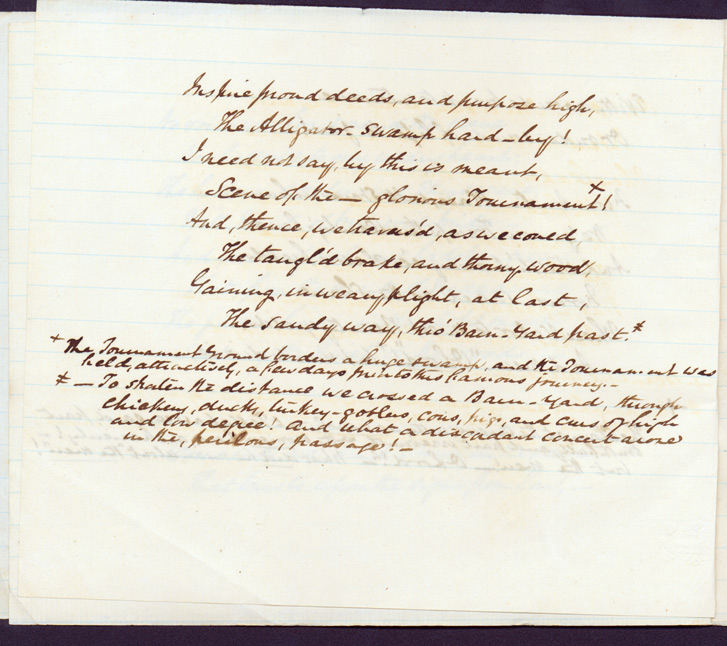 Inspire proud deeds, and purpose high,
The Alligator-swamp hard-by!
I need not say, by this is meant,
Scene of the — glorious Tournament!+
And, thence, we travers'd, as we could,
The tangl'd brake, and thorny wood,
Gaining, in weary plight, at last,
The sandy way, thro' Barn-Yard past.‡
+ The Tournament Ground borders a huge swamp, and the Tournament was
held, attractively, a few days prior to this famous journey.—
‡ — To shorten the distance we crossed a Barn-Yard, through
chickens, ducks, turkey-gobblers, cows, pigs, and curs of high
and low degree! And what a discordant concert arose
in the, perilous, passage! —